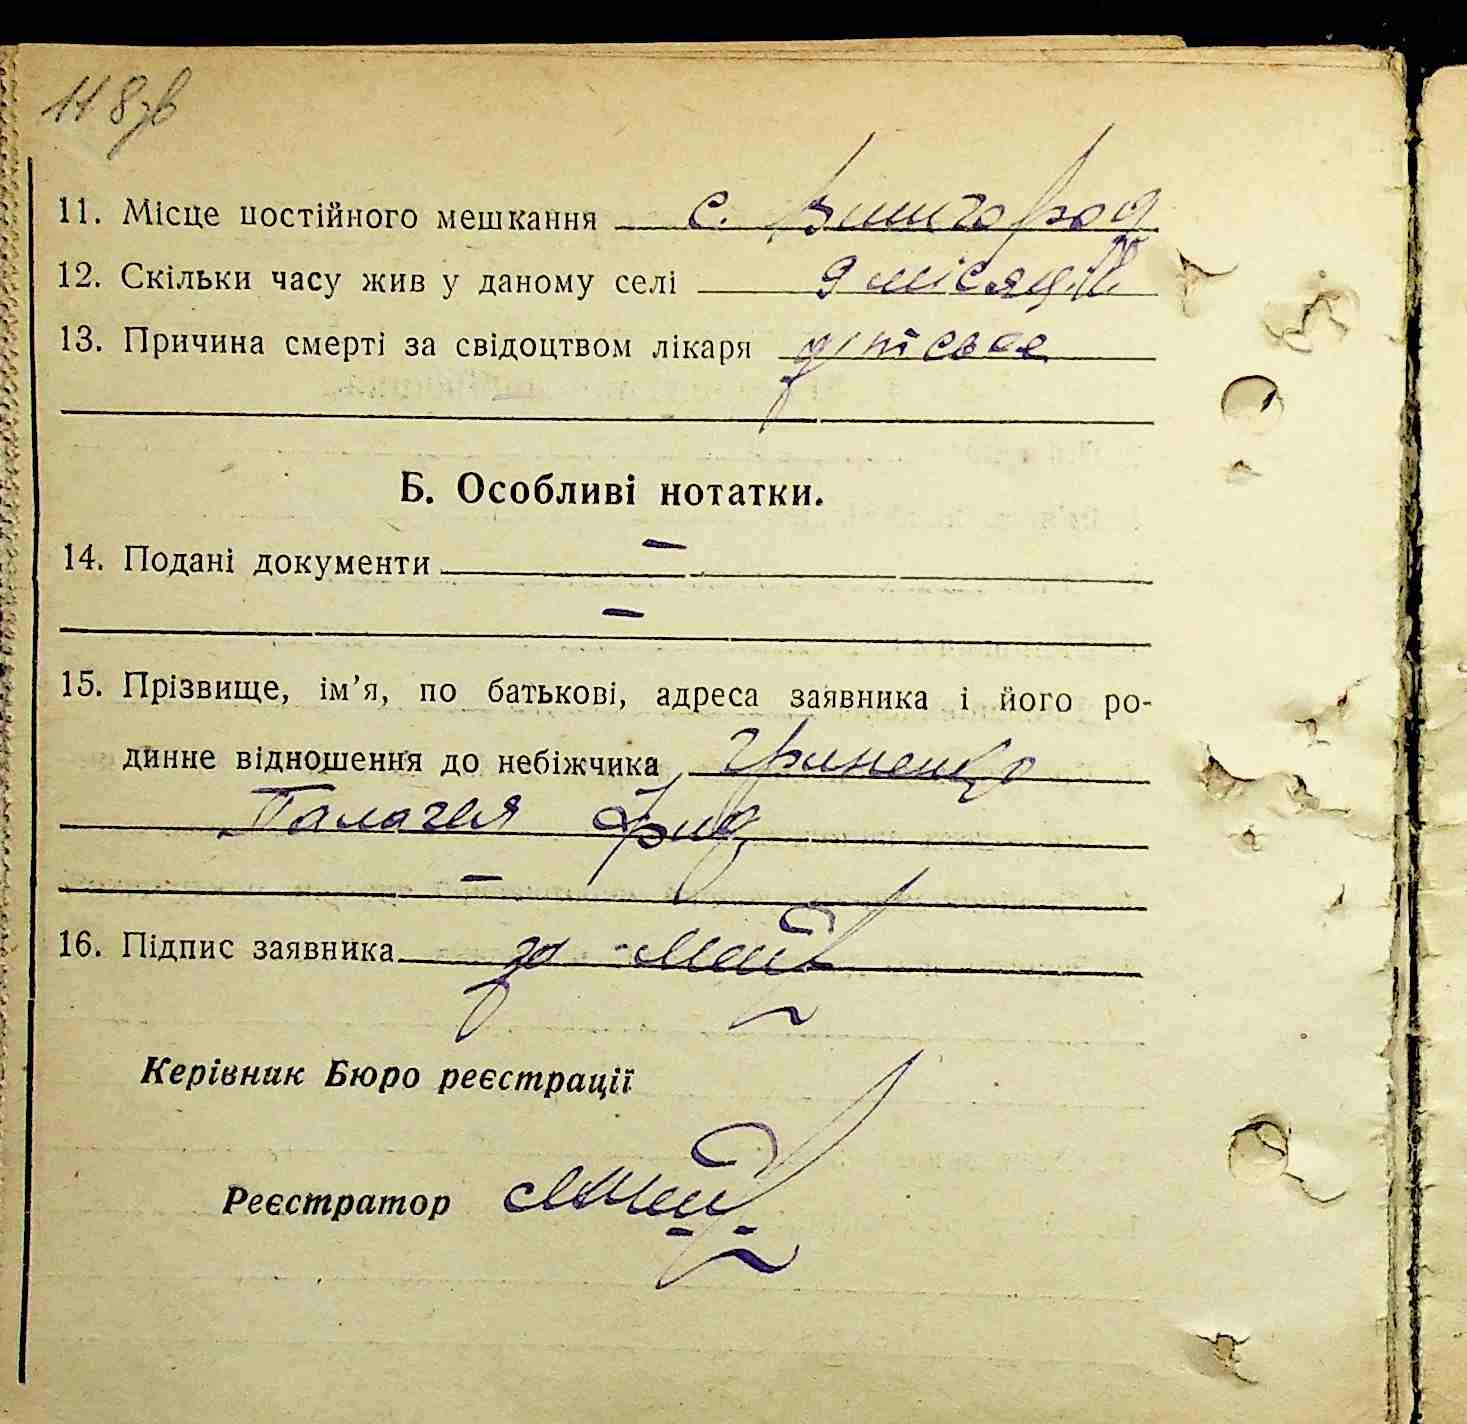 118зв
11. Місце постійного мешкання с. Вишгород
12. Скільки часу жив у даному селі 9 місяців
13. Причина смерті за свідоцтвом лікаря
Б. Особливі нотатки.
14. Подані документи —
—
15. Прізвище, ім’я, по батькові, адреса заявника і його ро-
динне відношення до небіжчика Гриненко
Палагея
—
16. Підпис заявника за
Керівник Бюро реєстрації
Реєстратор